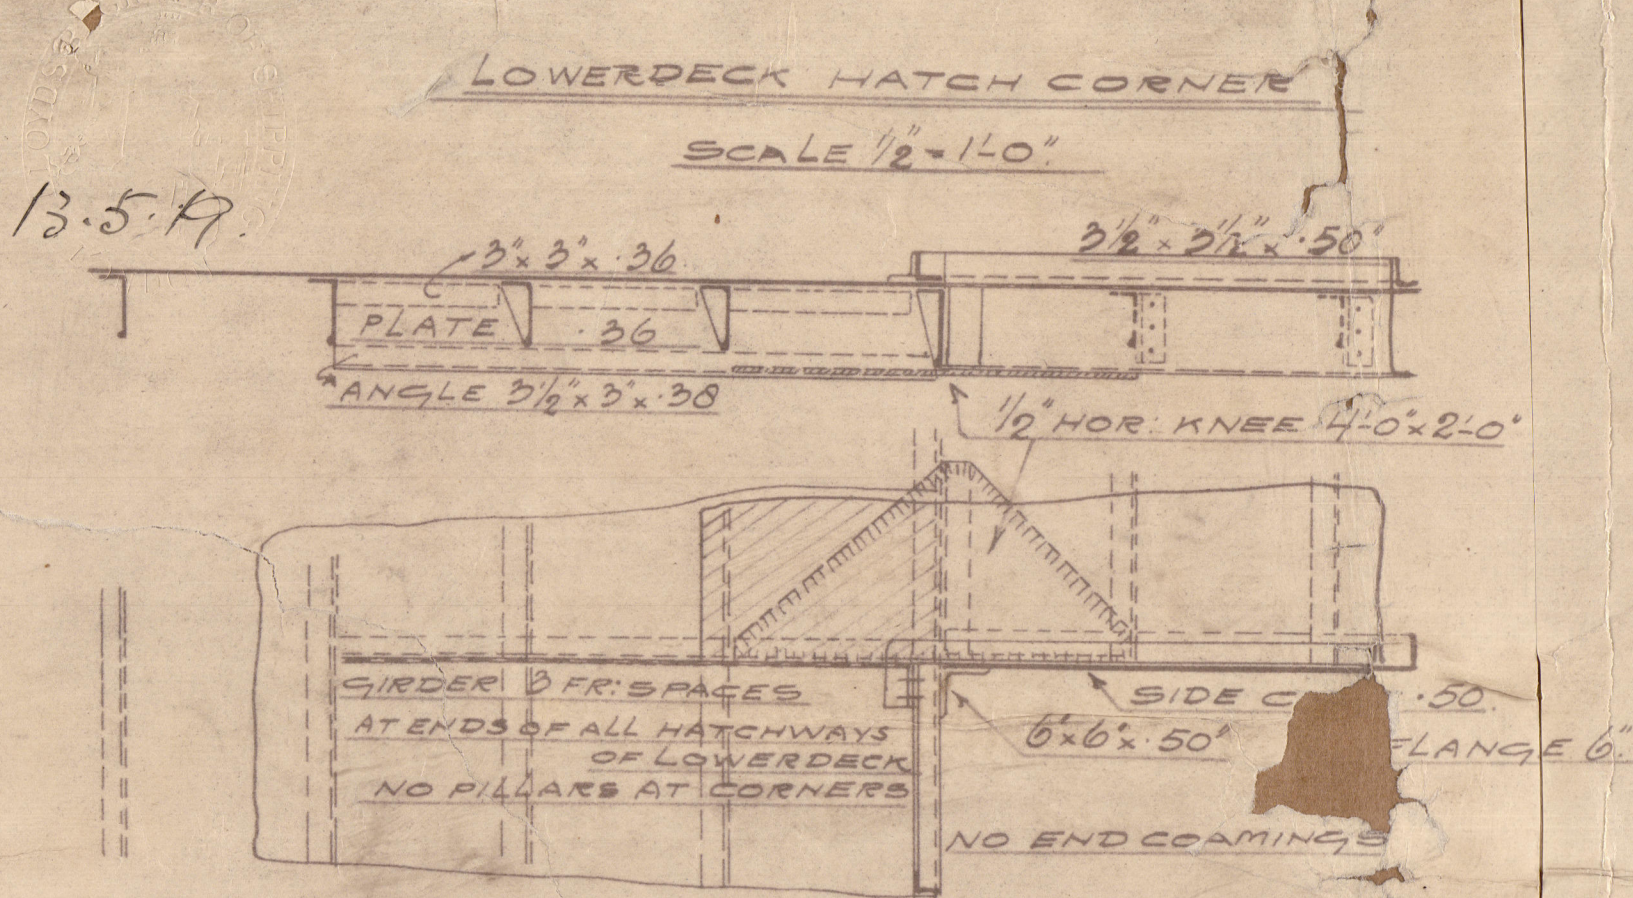 LOWERDECK HATCH CORNER
SCALE 1/2" = 1'-0".
13.5.19.
3" x 3" x .36
3 1/2" x 3 1/2" x .50"
PLATE .36
ANGLE 3 1/2" x 3" x .38
1/2" HOR: KNEE 4'-0" x 2'-0"
GIRDER 3 FR: SPACES
AT ENDS OF ALL HATCHWAYS
OF LOWERDECK
NO PILLARS AT CORNERS
SIDE C .50.
6" x 6" x .50"
FLANGE 6".
NO END COAMINGS